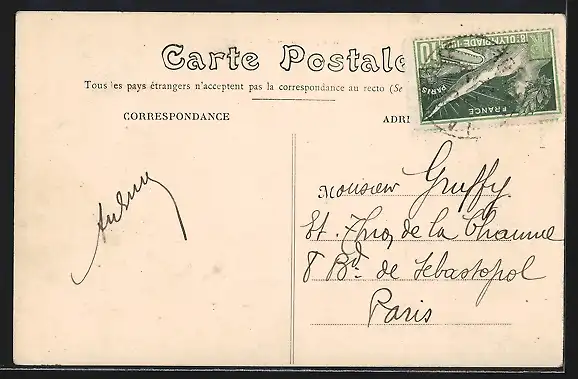 Carte Postale
Tous les pays étrangers n'acceptent pas la correspondance au recto (Se
CORRESPONDANCE
ADRE
10
8E OLYMPIADE
PARIS
FRANCE
Monsieur Gruffy
Et. Thro, de la Chaume
8 Bd. de Sebastopol
Paris